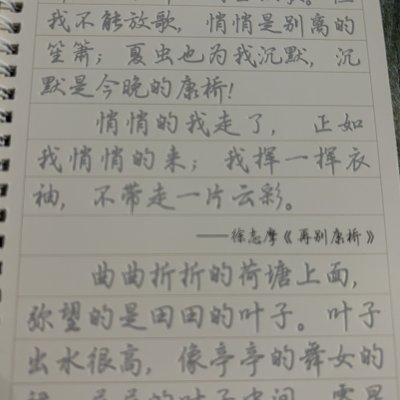 我不能放歌，悄悄是别离的
笙箫；夏虫也为我沉默，沉
默是今晚的康桥！
悄悄的我走了，正如
我悄悄的来；我挥一挥衣
袖，不带走一片云彩。
——徐志摩《再别康桥》
曲曲折折的荷塘上面，
弥望的是田田的叶子。叶子
出水很高，像亭亭的舞女的